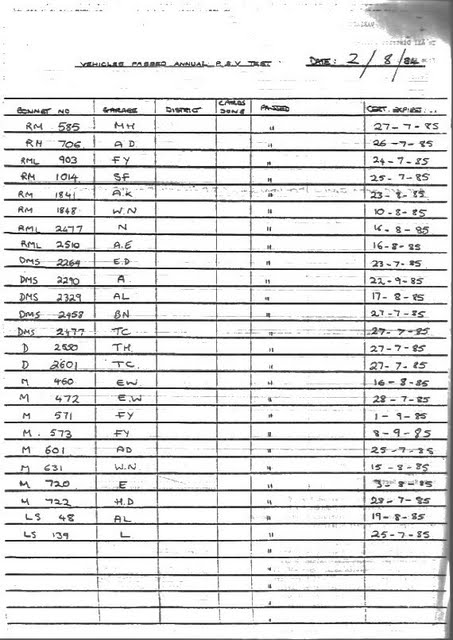 VEHICLES PASSED ANNUAL P.S.V TEST DATE: 2/8/84
BONNET NO GARAGE DISTRICT CARDS DONE PASSED CERT. EXPIRES...
RM 585 MH " 27-7-85
RM 706 A.D. " 26-7-85
RML 903 FY " 24-7-85
RM 1014 SF " 25-7-85
RM 1841 A.K " 23-8-85
RM 1848 W.N " 10-8-85
RML 2477 N " 16-8-85
RML 2510 A.E " 16-8-85
DMS 2264 E.D " 23-7-85
DMS 2290 A " 22-9-85
DMS 2329 AL " 17-8-85
DMS 2458 BN " 27-7-85
DMS 2477 TC " 27-7-85
D 2550 TH. " 27-7-85
D 2601 TC. " 27-7-85
M 460 EW. " 16-8-85
M 472 E.W " 28-7-85
M 571 FY " 1-9-85
M. 573 FY " 8-9-85
M 601 AD " 25-7-85
M 631 W.N " 15-8-85
M 720 E " 3-8-85
M 722 H.D " 28-7-85
LS 48 AL " 19-8-85
LS 139 L " 25-7-85
"
"
"
"